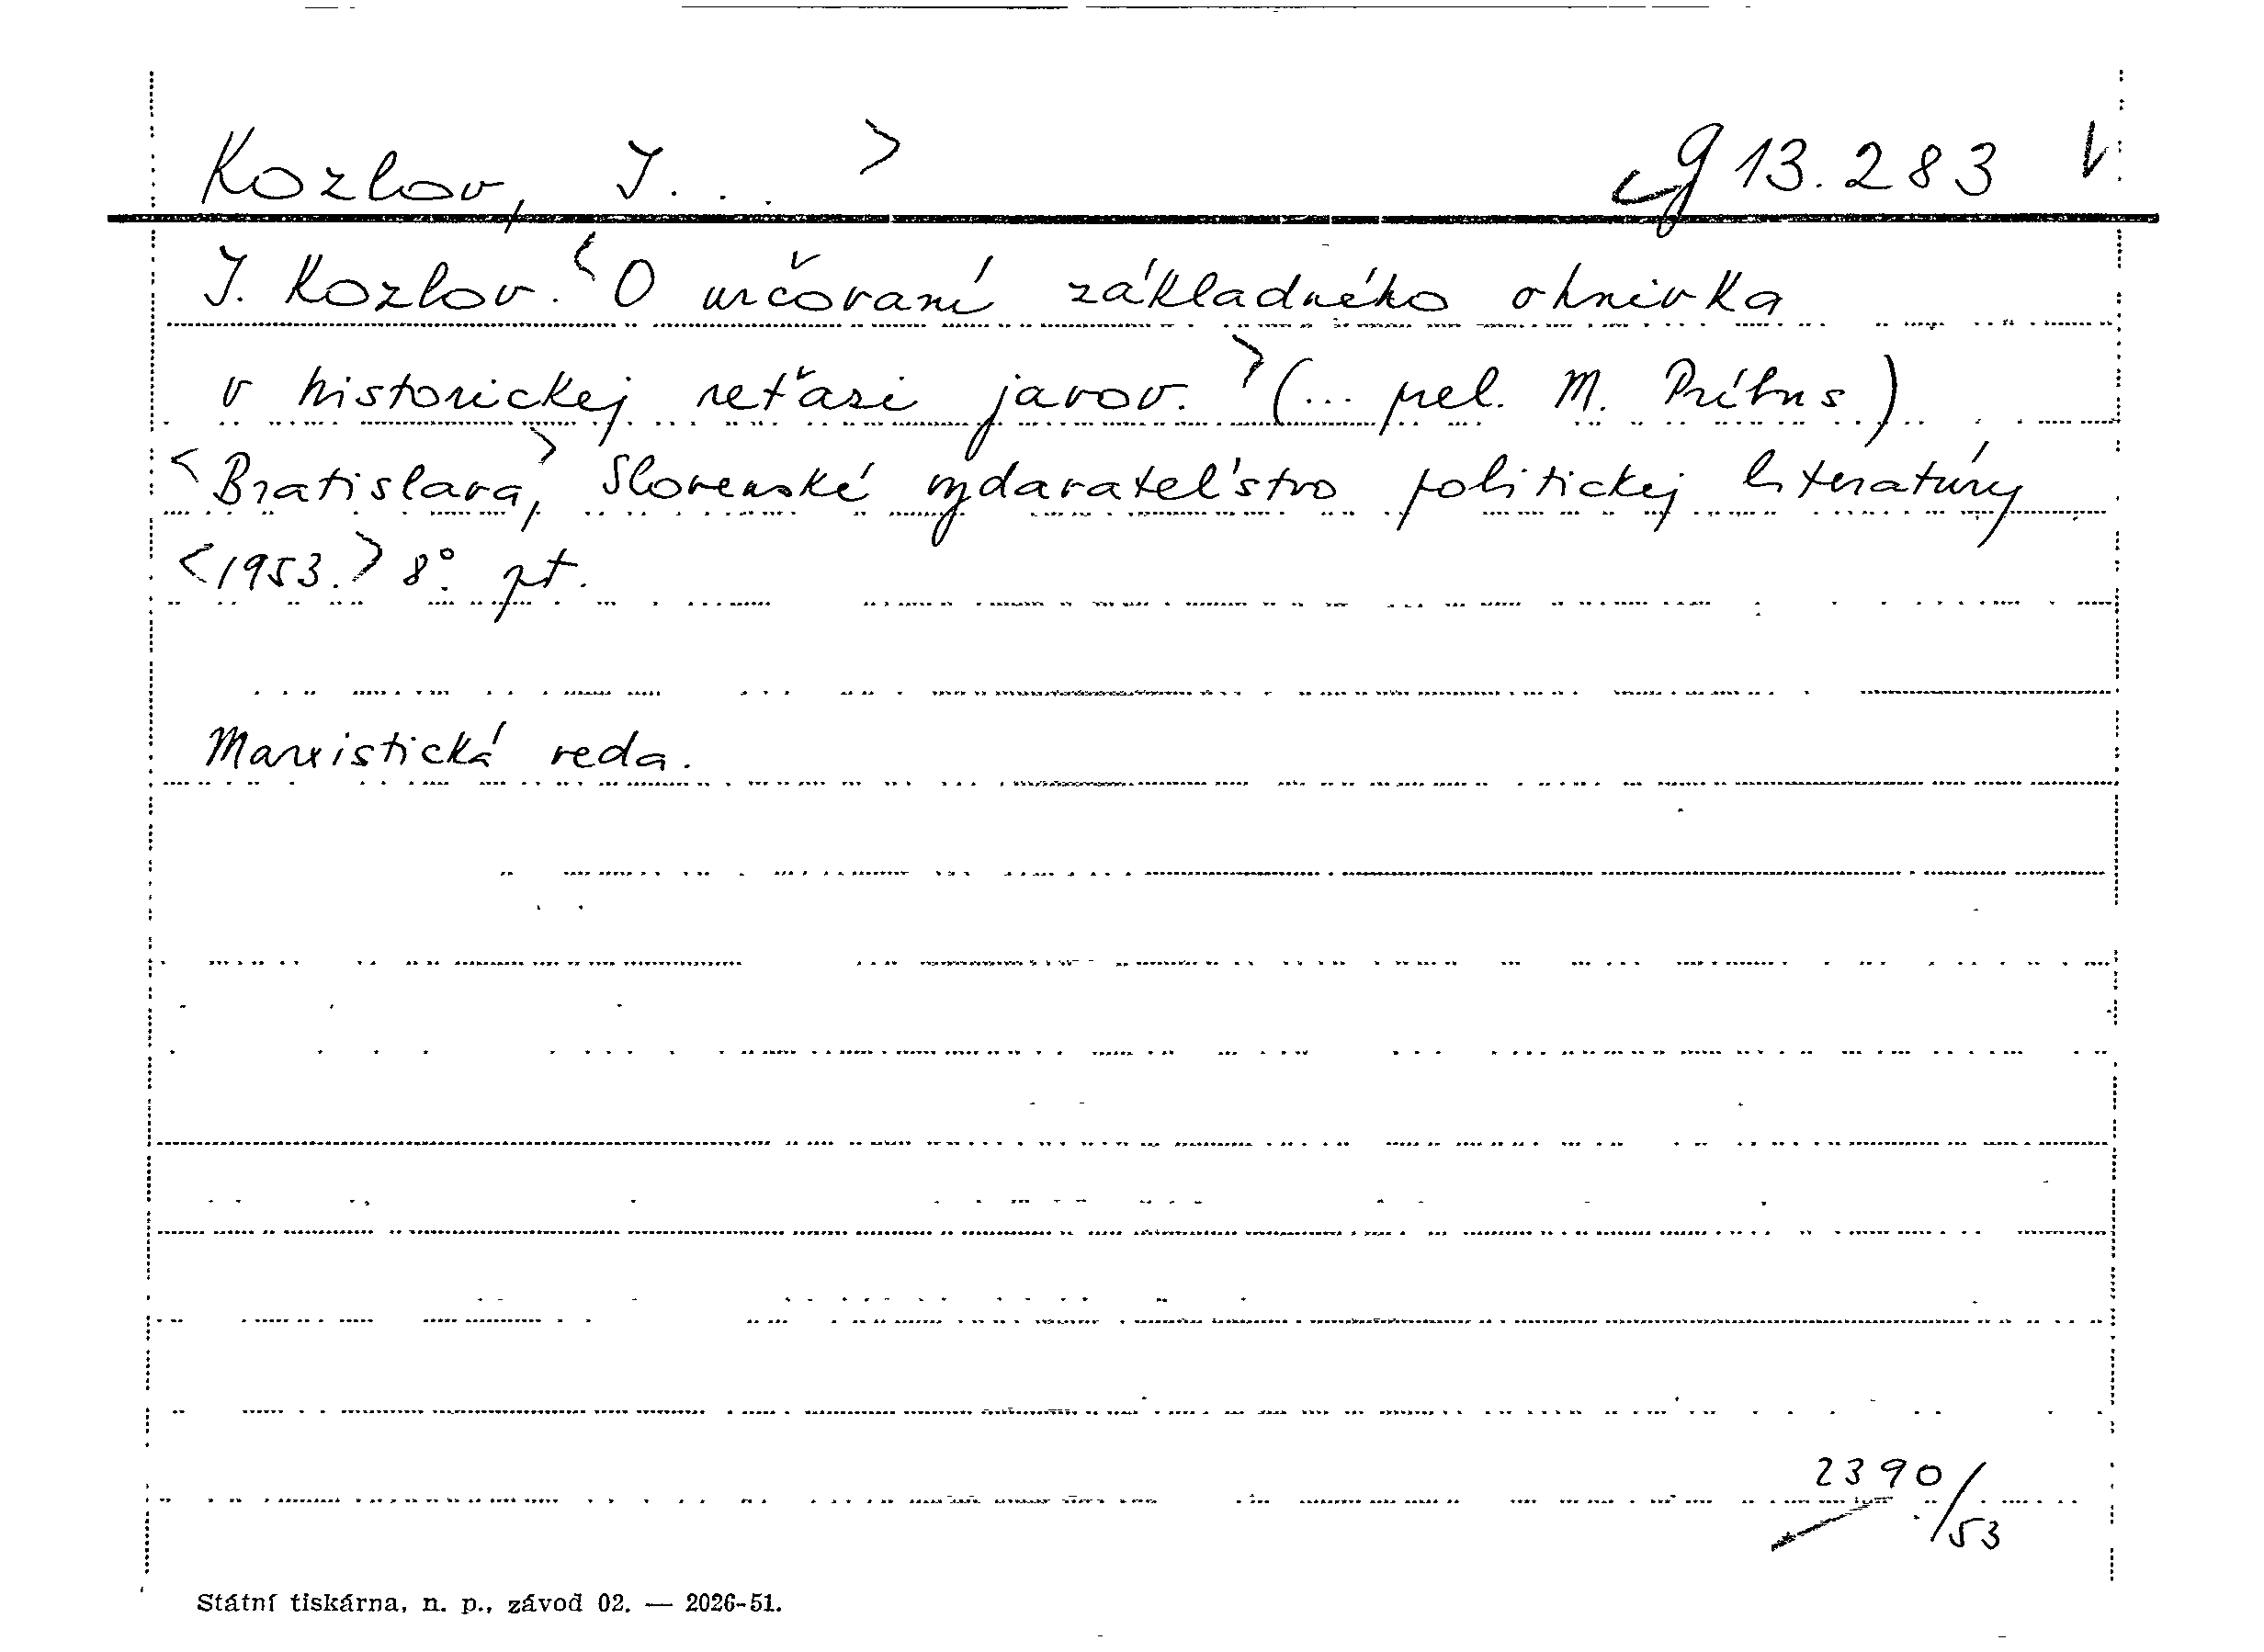 Kozlov, J. . . > g 13.283 V
J. Kozlov. <O určovaní základného ohnivka
v historickej reťazi javov.> (... prel. M. Príbus)
<Bratislava,> Slovenské vydavateľstvo politickej literatúry
<1953.> 8°. pt.
Marxistická veda.
2390/53
Státní tiskárna, n. p., závod 02. — 2026-51.